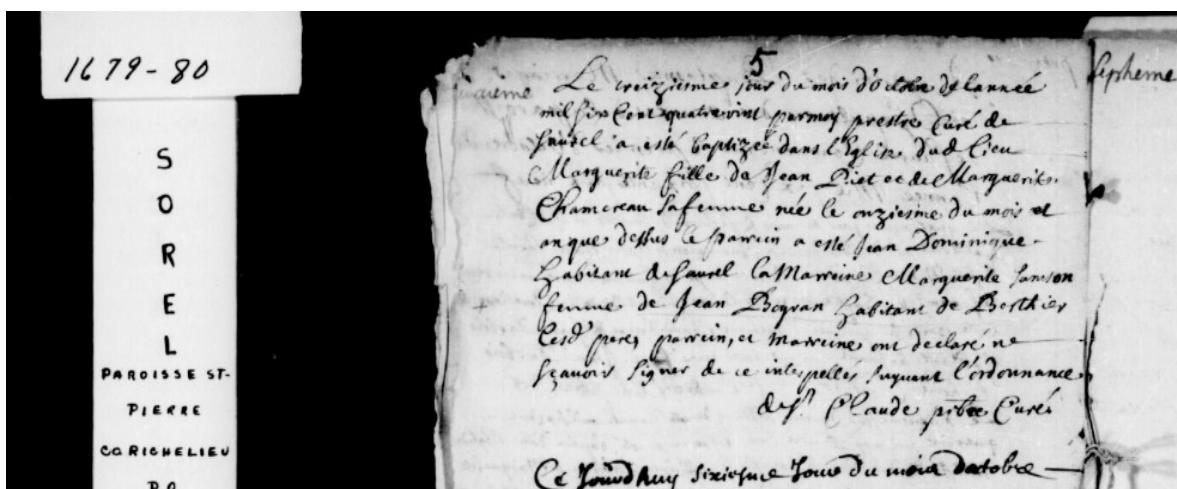 1679-80
S
O
R
E
L
PAROISSE ST-
PIERRE
CO RICHELIEU
P.Q.
5
Le treiziesme jour du mois d'octobre de lannée
mil six Cent quatre vint par moy prestre Curé de
Saurel a esté baptizée dans l'Eglise dud lieu
Marguerite fille de Jean Piet et de Marguerite
Chamereau sa femme née le onziesme du mois et
an que dessus le parrein a esté Jean Dominique
habitant de Saurel la Marreine Marguerite Samson
femme de Jean Begran habitant de Berthier
Lesd peres, parrein, et marreine ont declaré ne
sçavoir signer de ce interpelles suyvant l'ordonnance
de St Claude pbtre Curé
Ce Jourdhuy sixiesme Jour du mois doctobre